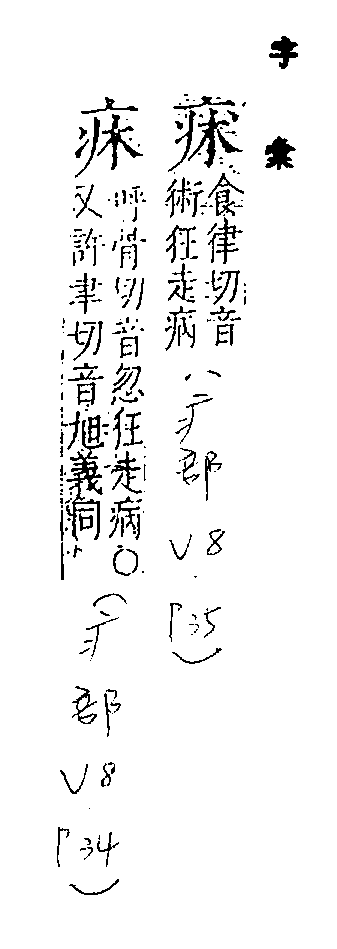 字彙
食律切音
術狂走病
(疒部 V8. P35)
呼骨切音忽狂走病〇
又許聿切音旭義同
(疒部 V8. P34)